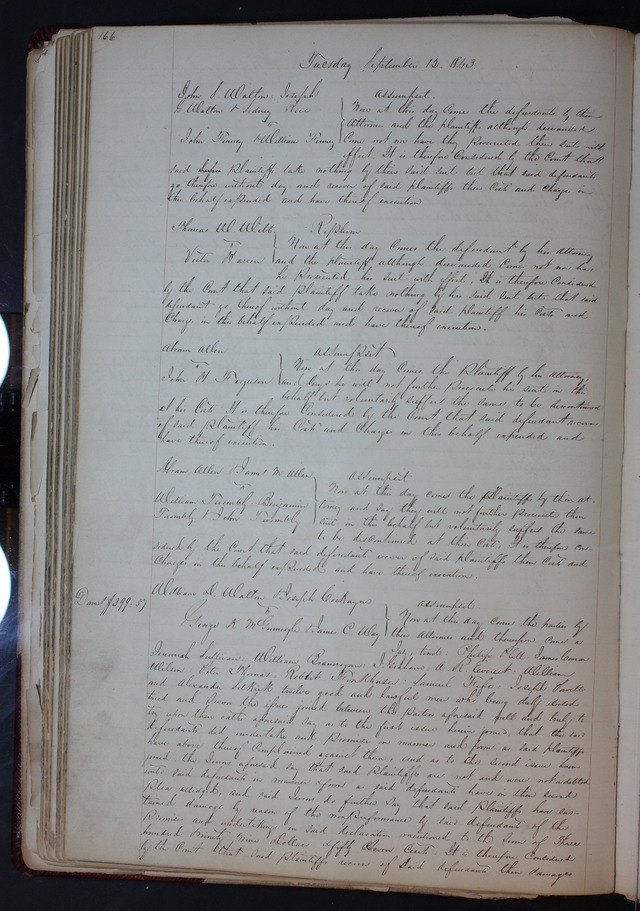 166
Tuesday September 12. 1843
John S. Walton Joseph Assumpsit.
G. Walton & Sidney Rice Now at this day come the defendants by their
vs Attornies and the plaintiffs although demanded
John Finney & William Finney Come not nor have they prosecuted their suit with
effect. It is therefore Considered by the Court that
said plaintiffs take nothing by their said suit but that said defendants
go therefore without day and recover of said plaintiffs their Costs and Charges in
this behalf expended and have thereof execution
Thomas W. Webb Replevin
vs Now at this day Comes the defendant by his Attorney
Victor Harrow and the plaintiff although demanded Comes not nor has
he prosecuted his suit with effect. It is therefore Considered
by the Court that said plaintiff take nothing by his said suit but that said
defendant go thereof without day and recover of said plaintiff his Costs and
Charges in this behalf expended and have thereof execution.
Abram Allen Assumpsit
vs Now at this day Comes the Plaintiff by his Attorney
John H. Ferguson and says he will not further prosecute his suit in this
behalf but voluntarily suffers the same to be discontinued
at his Costs It is therefore Considered by the Court that said defendant recover
of said plaintiff his Costs and Charges in this behalf expended and
have thereof execution.
Abram Allen & James M. Allen Assumpsit
vs Now at this day come the plaintiffs by their at-
William Trumbly Benjamin torney and say they will not further prosecute their
Trumbly & John Trumbly suit in this behalf but voluntarily suffers the same
to be discontinued at their Costs. It is therefore con-
sidered by the Court that said defendants recover of said plaintiffs their Costs and
Charges in this behalf expended and have thereof execution.
Dam. $399.57
William D. Walton & Joseph Cockayne Assumpsit
vs Now at this day come the parties by
George K. McGunnegle & James C. Way their Attornies and thereupon come a
Jury, to wit: Philip Hill James Conran
Jeremiah Sullivan William Brannegan J. A. R. William
Wilson Peter Thomas Robert Samuel Fife Joseph Powell
and Alexander Selkirk twelve good and lawful men who being duly elected
tried and sworn the issues joined between the Parties aforesaid well and truly to
try upon their oaths aforesaid say as to the first issue herein joined, that the said
defendants did undertake and promise in manner and form as said plaintiffs
have above thereof Complained against them, and as to the second issue herein
joined the Jurors aforesaid say that said Plaintiffs are not and were not indebted
unto said defendants in manner & form as said defendants have in their second
Plea alleged, and said Jurors do further say that said Plaintiffs have sus-
tained damage by reason of the nonperformance by said defendants of the
Promises and undertakings in said declaration mentioned to the sum of Three
hundred ninety nine Dollars & fifty seven Cents It is therefore Considered
by the Court that said Plaintiffs recover of said defendants their damages